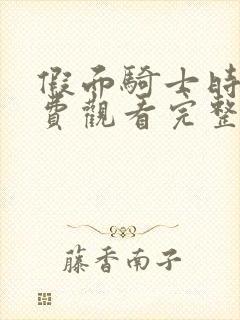 假面騎士時
費觀看完整
藤香南子